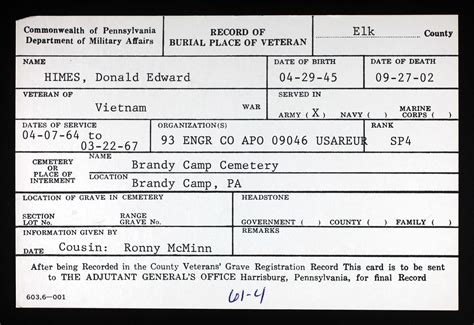 Commonwealth of Pennsylvania
Department of Military Affairs
RECORD OF
BURIAL PLACE OF VETERAN
Elk
County
NAME
HIMES, Donald Edward
DATE OF BIRTH
04-29-45
DATE OF DEATH
09-27-02
VETERAN OF
Vietnam
WAR
SERVED IN
ARMY ( X ) NAVY ( ) MARINE CORPS ( )
DATES OF SERVICE
04-07-64 to
03-22-67
ORGANIZATION(S)
93 ENGR CO APO 09046 USAREUR
RANK
SP4
CEMETERY
OR
PLACE OF
INTERMENT
NAME
Brandy Camp Cemetery
LOCATION
Brandy Camp, PA
LOCATION OF GRAVE IN CEMETERY
SECTION RANGE
LOT No. GRAVE No.
HEADSTONE
GOVERNMENT ( ) COUNTY ( ) FAMILY ( )
INFORMATION GIVEN BY
DATE Cousin: Ronny McMinn
REMARKS
After being Recorded in the County Veterans' Grave Registration Record This card is to be sent
to THE ADJUTANT GENERAL'S OFFICE Harrisburg, Pennsylvania, for final Record
603.6—001
61-4